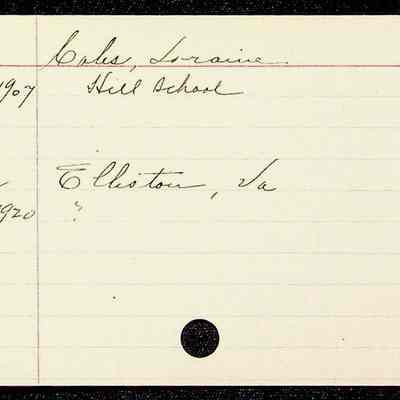 Coles, Loraine.
1907 Hill School
Elliston, Va
1920 "